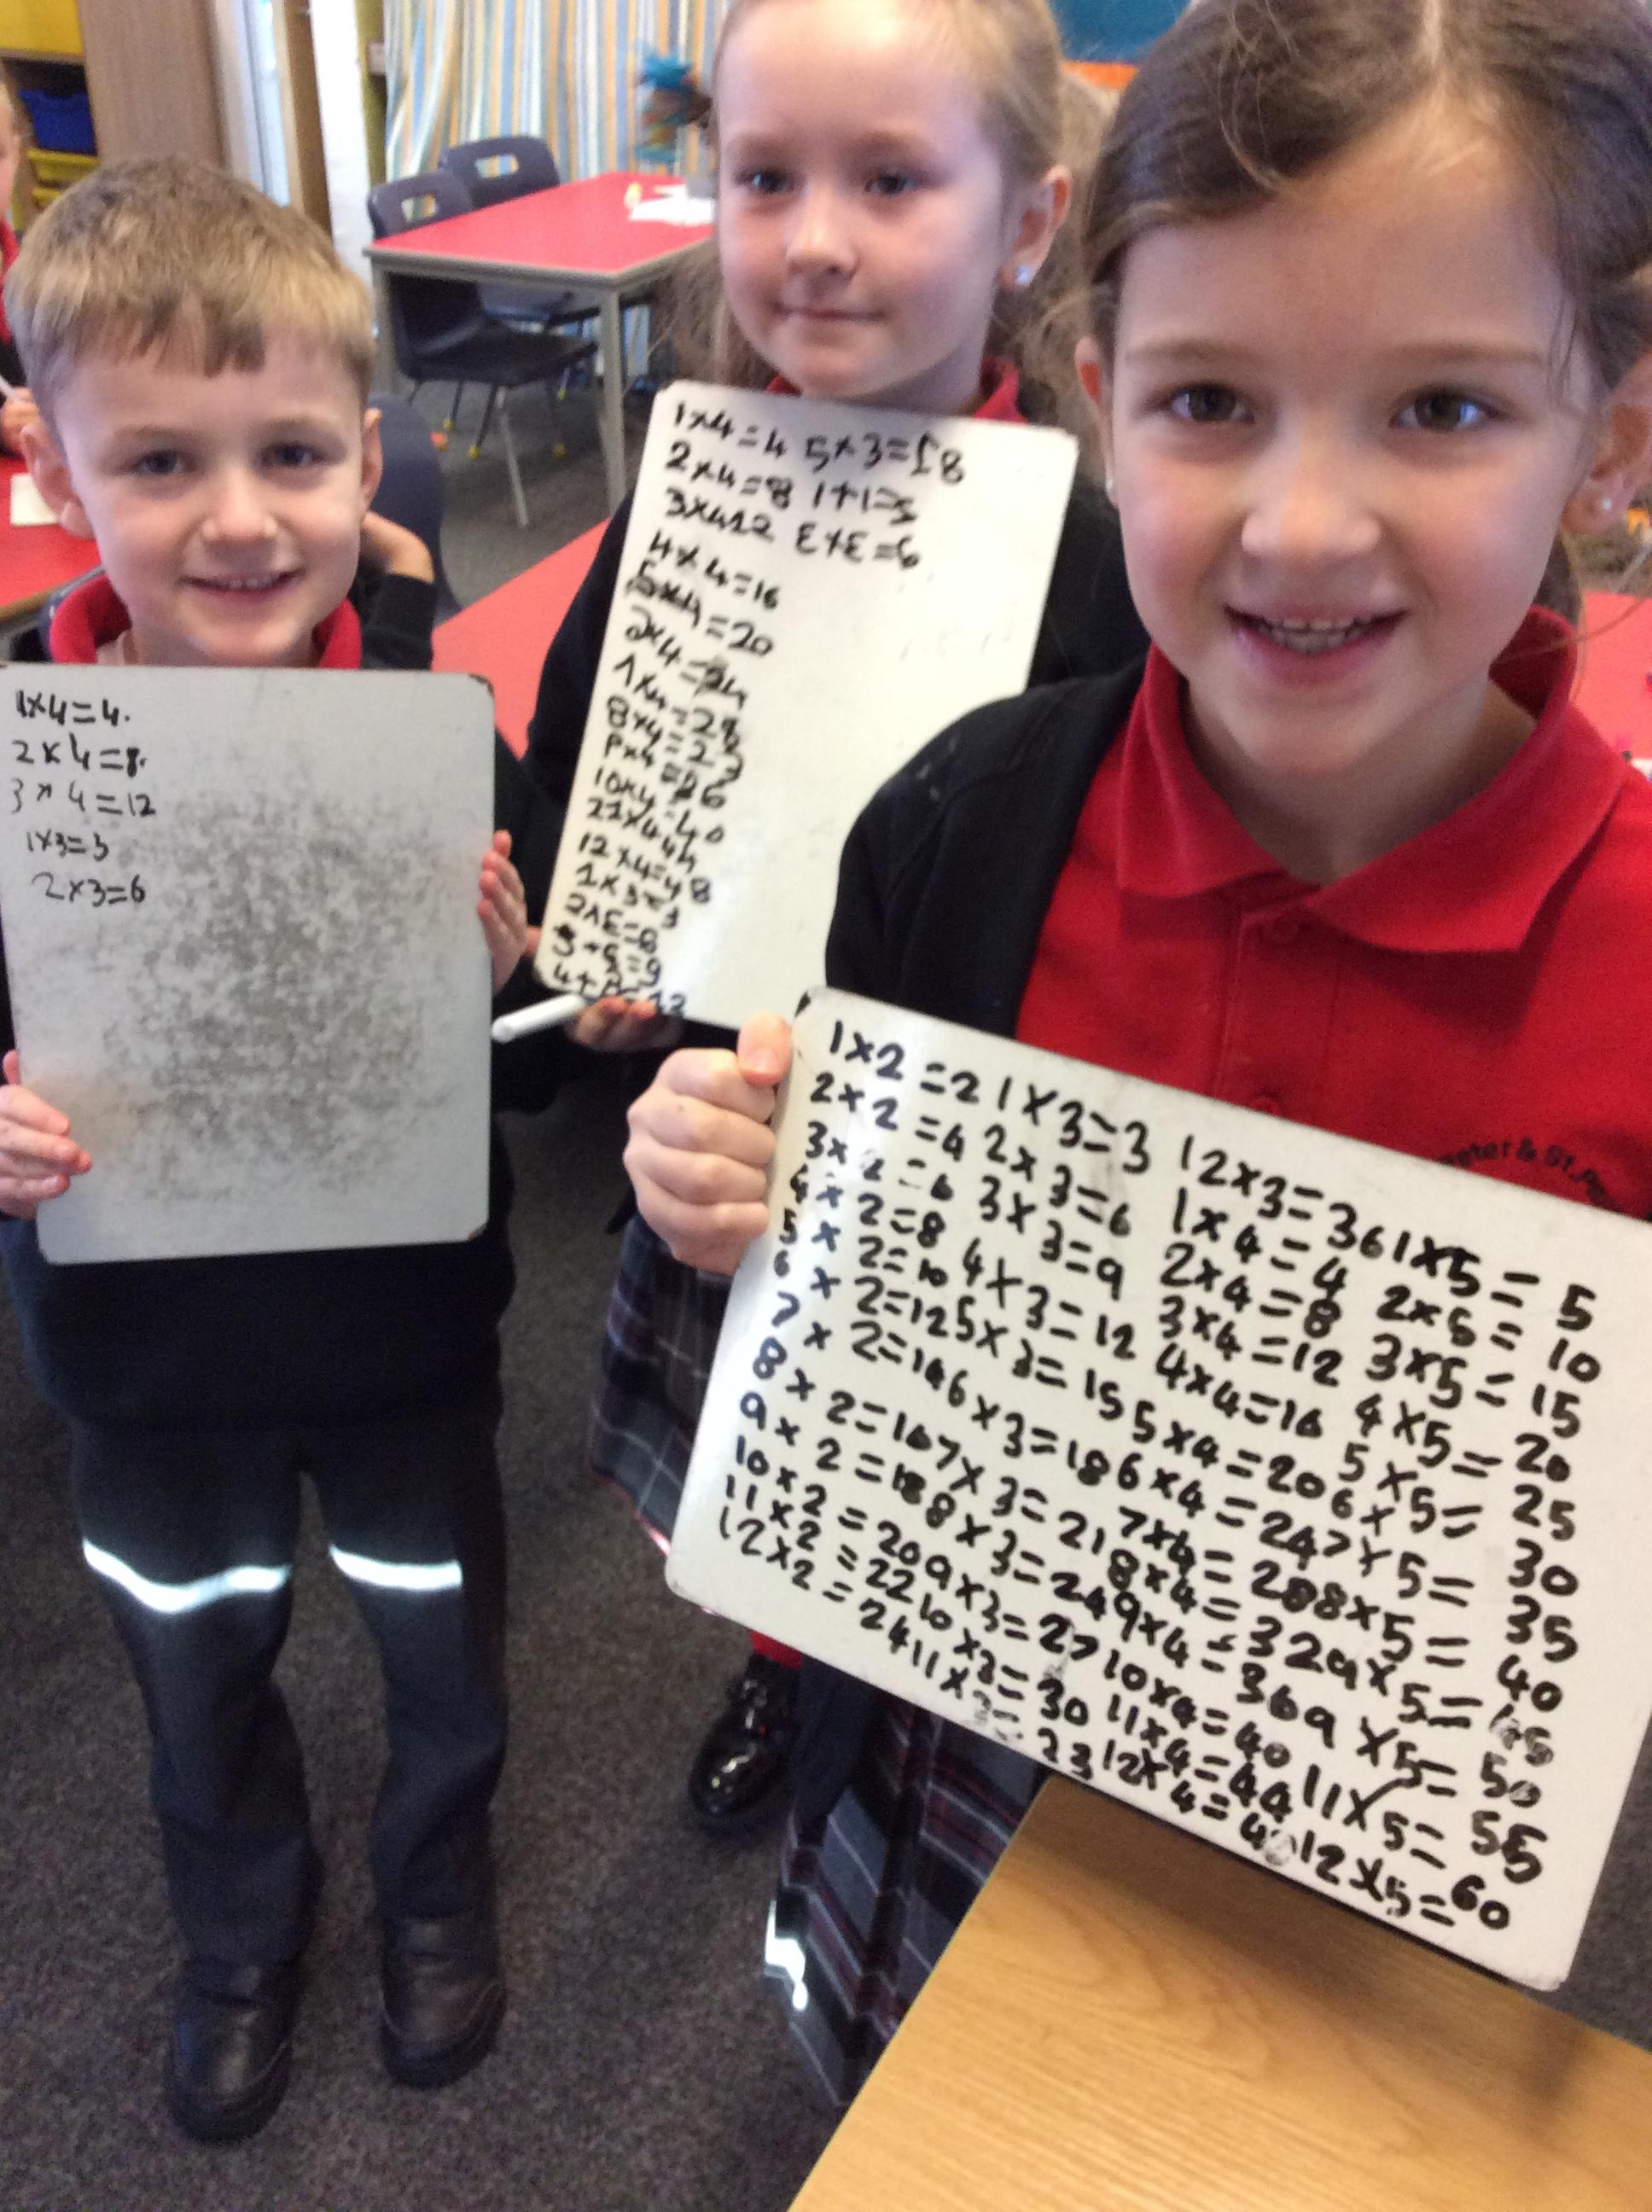 1x4=4.
2x4=8.
3x4=12
1x3=3
2x3=6
1x4=4 5x3=18
2x4=8 1+1=
3x412 ExE=6
4x4=16
5x4=20
2x4=24
1x4=28
8x4=
Px4=
10x4=40
22x444
12x4=48
1x3=3
2xE=6
=9
1x2=2 1x3=3 12x3=36 1x5=5
2x2=4 2x3=6 1x4=4 2x5=10
3x2=6 3x3=9 2x4=8 3x5=15
4x2=8 4x3=12 3x4=12 4x5=20
5x2=10 5x3=15 4x4=16 5x5=25
6x2=12 6x3=18 5x4=20 6x5=30
7x2=14 7x3=21 6x4=24 7x5=35
8x2=16 8x3=24 7x4=28 8x5=40
9x2=18 9x3=27 8x4=32 9x5=45
10x2=20 10x3=30 9x4=36 9x5=50
11x2=22 11x3=23 10x4=40 11x5=55
12x2=24 11x4=44 12x5=60
12x4=4
& St.